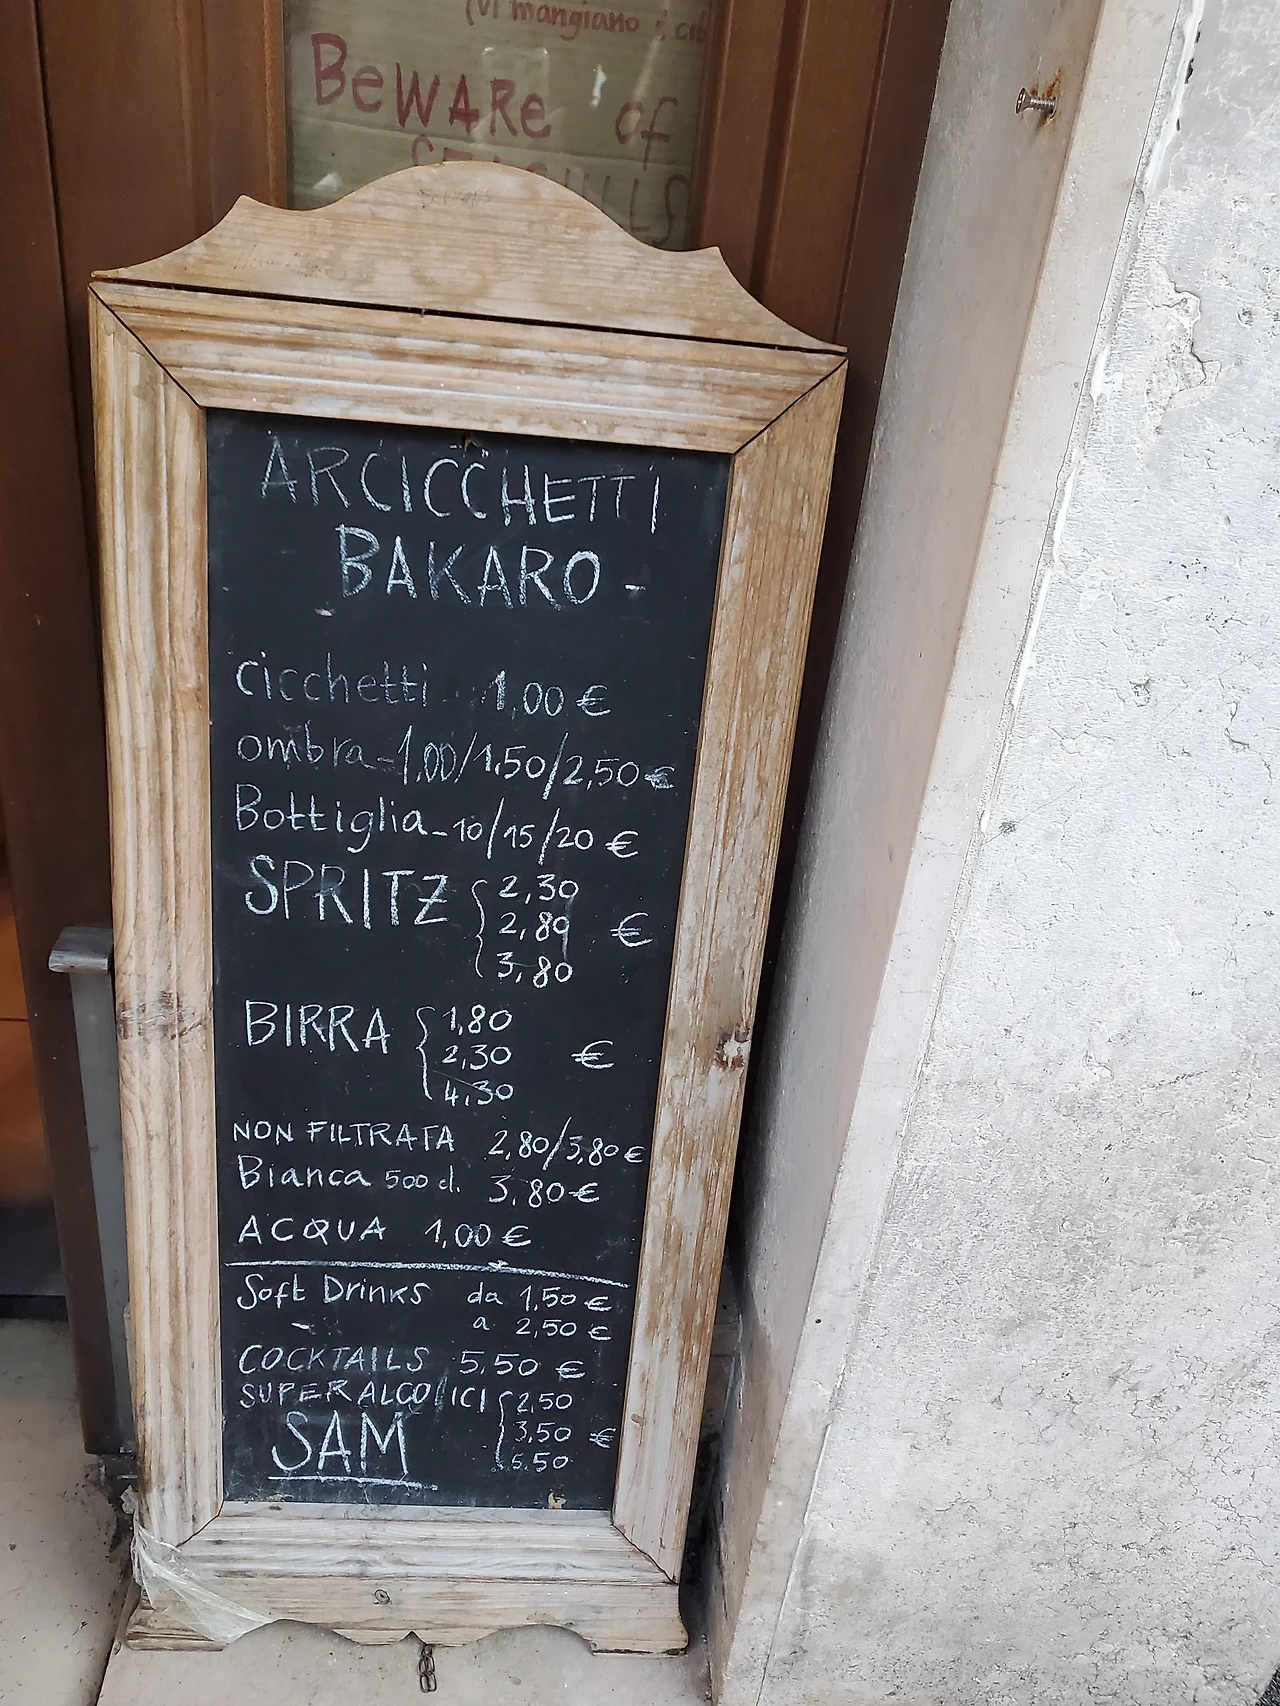 (vi mangiano i cib
BeWARe of
ARCICCHETTI
BAKARO -
cicchetti 1,00 €
ombra - 1,00/1,50/2,50 €
Bottiglia - 10/15/20 €
SPRITZ { 2,30
2,80 €
3,80
BIRRA { 1,80
2,30 €
4,30
NON FILTRATA 2,80/3,80 €
Bianca 500 cl. 3,80 €
ACQUA 1,00 €
Soft Drinks da 1,50 €
a 2,50 €
COCKTAILS 5,50 €
SUPERALCOLICI { 2,50
3,50 €
5,50
SAM